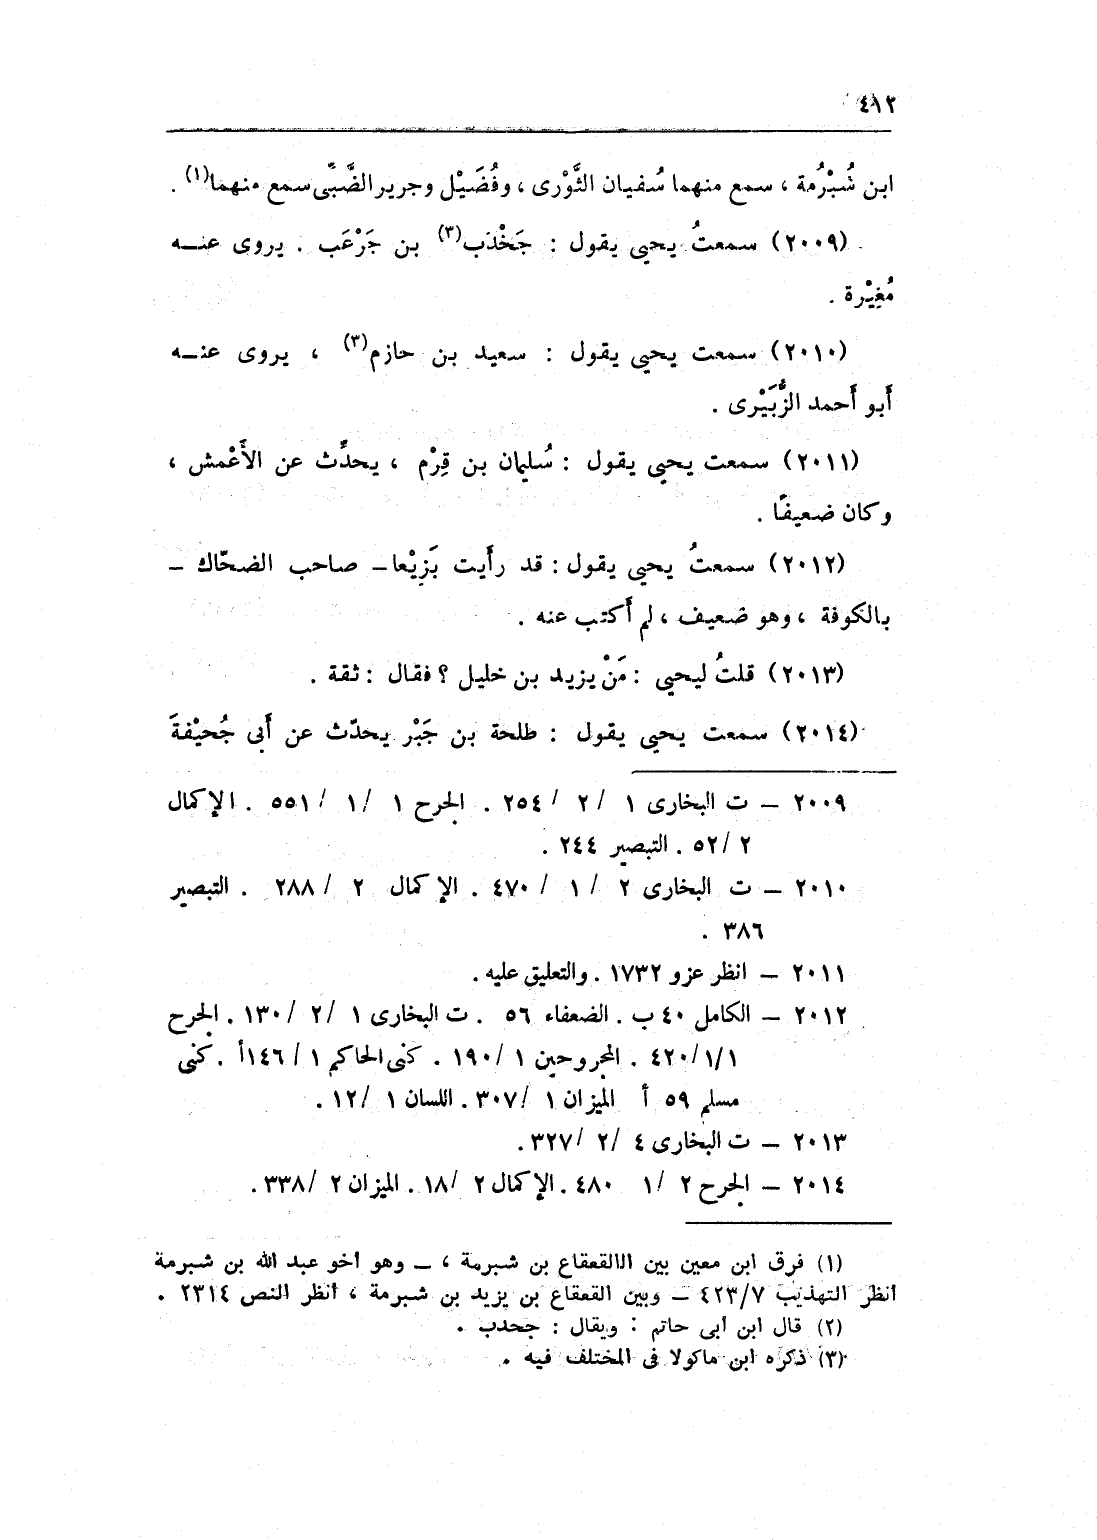 ٤١٢
ابن شُبْرُمة ، سمع منهما سُفيان الثَّوْرى ، وفُضَيْل وجرير الضَّبِّى سمع منهما(١) .
(٢٠٠٩) سمعتُ يحيى يقول : جَخْدَب(٣) بن جَرْعَب . يروى عنه
مُغِيْرة .
(٢٠١٠) سمعت يحيى يقول : سعيد بن حازم(٣) ، يروى عنه
أَبو أَحمد الزُّبَيْرى .
(٢٠١١) سمعت يحيى يقول : سُليمان بن قِرْم ، يحدِّث عن الأَعْمش ،
وكان ضعيفًا .
(٢٠١٢) سمعتُ يحيى يقول : قد رأَيت بَزِيْعا – صاحب الضحّاك –
بالكوفة ، وهو ضعيف ، لم أَكتب عنه .
(٢٠١٣) قلتُ ليحيى : مَنْ يزيد بن خليل ؟ فقال : ثقة .
(٢٠١٤) سمعت يحيى يقول : طلحة بن جَبْر يحدّث عن أَبى جُحيْفةَ
٢٠٠٩ – ت البخارى ١ /٢ /٢٥٤ . الجرح ١ /١ /٥٥١ . الإكمال
٢ /٥٢ . التبصير ٢٤٤ .
٢٠١٠ – ت البخارى ٢ /١ /٤٧٠ . الإكمال ٢ /٢٨٨ . التبصير
٣٨٦ .
٢٠١١ – انظر عزو ١٧٣٢ . والتعليق عليه .
٢٠١٢ – الكامل ٤٠ ب . الضعفاء ٥٦ . ت البخارى ١ /٢ /١٣٠ . الجرح
١/١/٤٢٠ . المجروحين ١ /١٩٠ . كنى الحاكم ١ /١٤٦أ . كنى
مسلم ٥٩ أ الميزان ١ /٣٠٧ . اللسان ١ /١٢ .
٢٠١٣ – ت البخارى ٤ /٢ /٣٢٧ .
٢٠١٤ – الجرح ٢ /١ ٤٨٠ . الإكمال ٢ /١٨ . الميزان ٢ /٣٣٨ .
(١) فرق ابن معين بين الالقعقاع بن شبرمة ، – وهو أخو عبد الله بن شبرمة
أنظر التهذيب ٤٢٣/٧ – وبين القعقاع بن يزيد بن شبرمة ، أنظر النص ٢٣١٤ .
(٢) قال ابن أبى حاتم : ويقال : جحدب .
(٣) ذكره ابن ماكولا فى المختلف فيه .